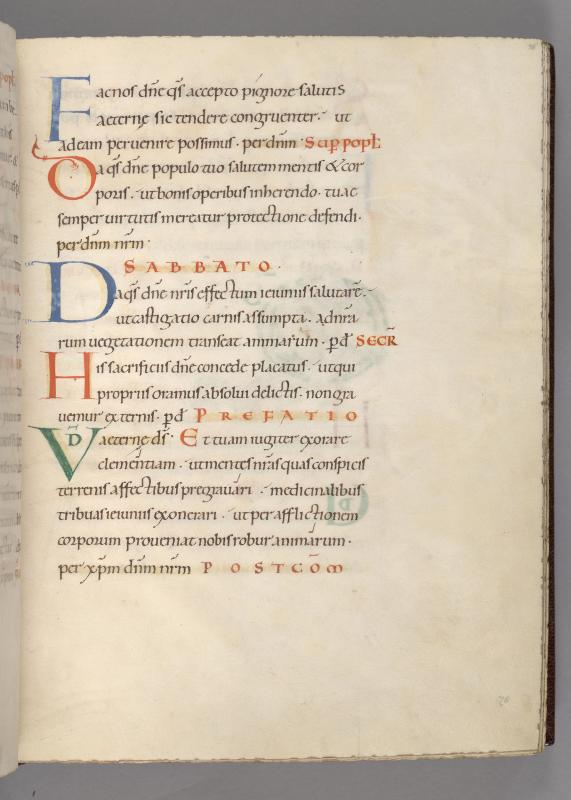 Fac nos dn̄e qs̄ accepto pignore salutis
aeternę sic tendere congruenter. ut
ad eam peruenire possimus. per dn̄m Sup̄ popl̄
Da qs̄ dn̄e populo tuo salutem mentis & cor
poris. ut bonis operibus inherendo. tuae
semper uirtutis mereatur protectione defendi.
per dn̄m nr̄m.
SABBATO.
Da qs̄ dn̄e nr̄is effectum ieiuniis salutarē.
ut castigatio carnis assumpta. ad nr̄a
rum uegetationem transeat animarum. p̄d̄ SECR̄
His sacrificiis dn̄e concede placatus. ut qui
propriis oramus absolui delictis. non gra
uemur externis. p̄d̄ PREFATIO
VD̄ aeternę d̄s. Et tuam iugiter exorare
clementiam. ut mentes nr̄as quas conspicis
terrenis affectibus pregrauari. medicinalibus
tribuas ieiuniis exonerari. ut per afflictionem
corporum proueniat nobis robur animarum.
per xp̄m dn̄m nr̄m POSTCOM̄
76